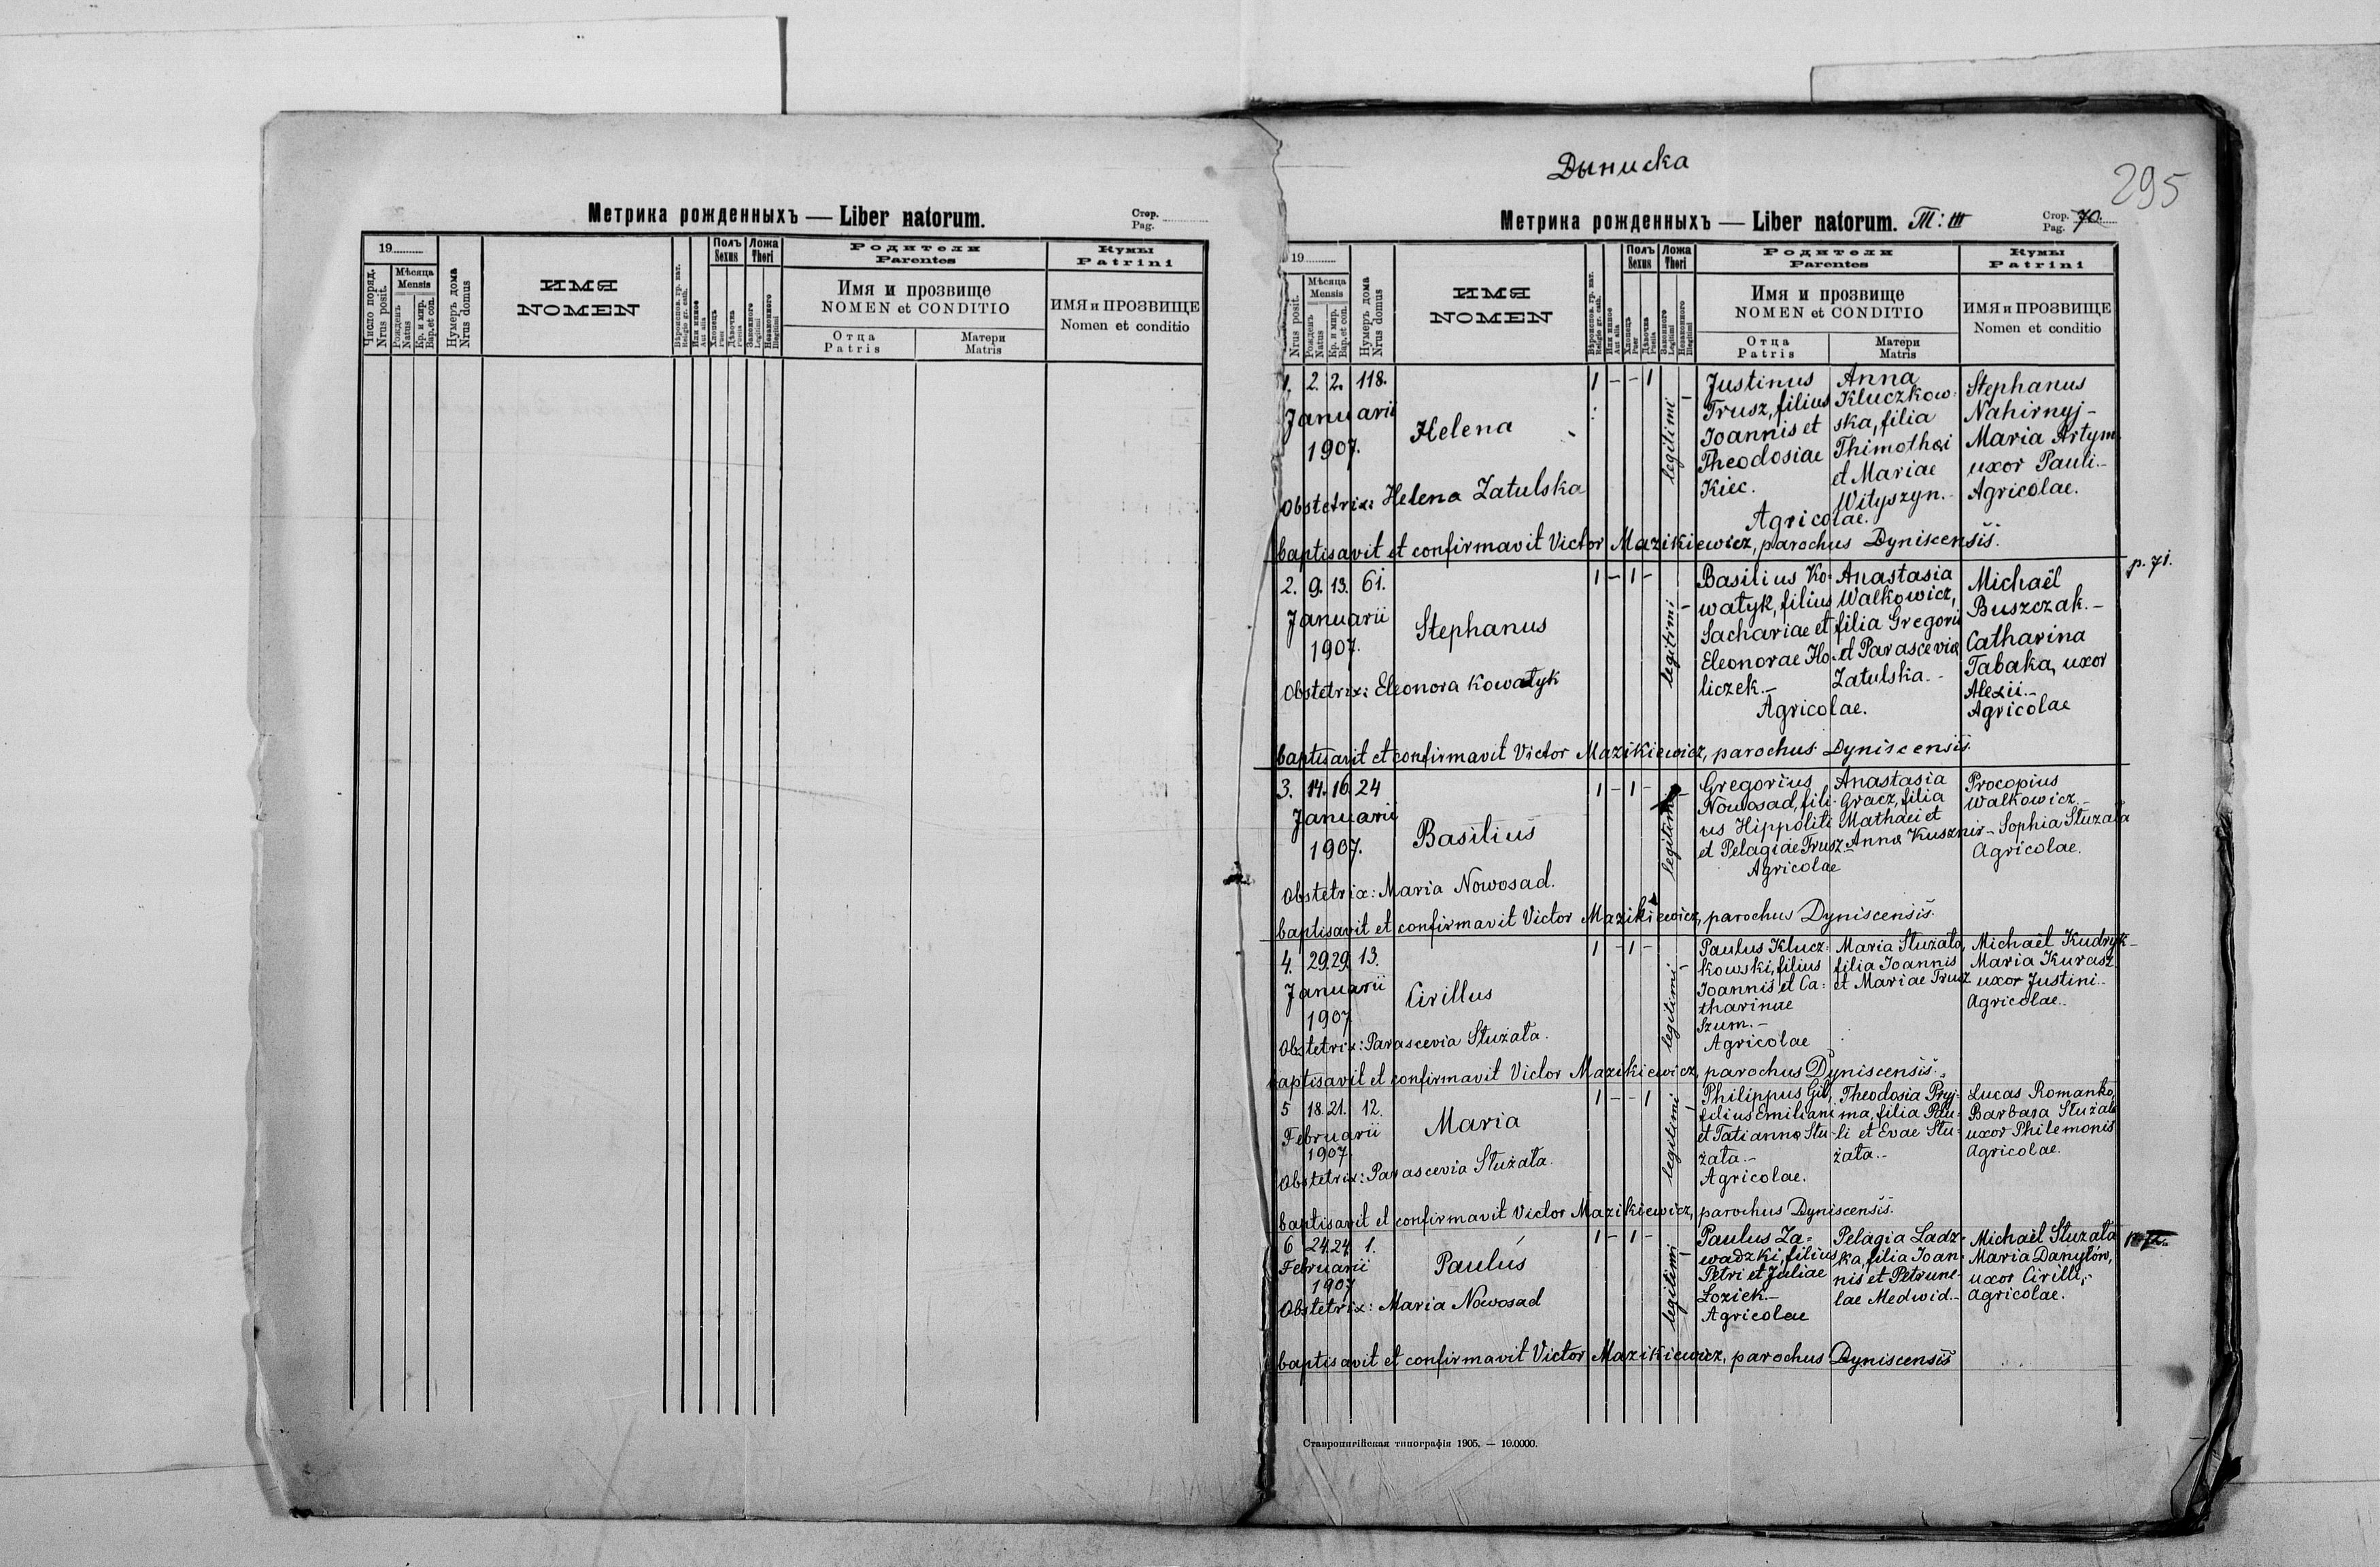 Метрика рожденныхъ — Liber natorum.
Стор.
Pag.
19
Число поряд.
Nrus posit.
Мѣсяца
Mensis
Рожденъ
Natus
Кр. и мир.
Bap. et con.
Нумеръ дома
Nrus domus
ИМЯ
NOMEN
Вѣроисповѣ. гр. кат.
Religio gr. cath.
Или инное
Aut alia
Полъ
Sexus
Хлопець
Puer
Дѣвочка
Puella
Ложа
Thori
Законного
Legitimi
Незаконного
Illegitimi
Родители
Parentes
Имя и прозвище
NOMEN et CONDITIO
Отца
Patris
Матери
Matris
Кумы
Patrini
ИМЯ и ПРОЗВИЩЕ
Nomen et conditio
Дыниска
295
Метрика рожденныхъ — Liber natorum. T: III
Стор.
Pag. 70.
19
Nrus posit.
Мѣсяца
Mensis
Рожденъ
Natus
Кр. и мир.
Bap. et con.
Нумеръ дома
Nrus domus
ИМЯ
NOMEN
Вѣроисповѣ. гр. кат.
Religio gr. cath.
Или инное
Aut alia
Полъ
Sexus
Хлопець
Puer
Дѣвочка
Puella
Ложа
Thori
Законного
Legitimi
Незаконного
Illegitimi
Родители
Parentes
Имя и прозвище
NOMEN et CONDITIO
Отца
Patris
Матери
Matris
Кумы
Patrini
ИМЯ и ПРОЗВИЩЕ
Nomen et conditio
1. 2. 2. 118.
Januarii
1907.
Helena
1 - - 1
legitimi
Justinus
Trusz, filius
Joannis et
Theodosiae
Kiec.
Anna
Kluczkow-
ska, filia
Thimothei
et Mariae
Wityszyn.-
Agricolae.
Stephanus
Nahirnyj-
Maria Artym
uxor Pauli.-
Agricolae.
Obstetrix: Helena Zatulska
baptisavit et confirmavit Victor Mazikiewicz, parochus Dyniscensis.
2. 9. 13. 61.
Januarii
1907.
Stephanus
1 - 1 -
legitimi
Basilius Ko-
watyk, filius
Sachariae et
Eleonorae Ho-
liczek.-
Anastasia
Walkowicz,
filia Gregorii
et Parasceviae
Zatulska.-
Agricolae.
Michaël
Buszczak.-
Catharina
Tabaka, uxor
Alexii.-
Agricolae
p. 71.
Obstetrix: Eleonora Kowatyk
baptisavit et confirmavit Victor Mazikiewicz, parochus Dyniscensis.
3. 14. 16. 24
Januarii
1907.
Basilius
1 - 1 -
legitimi
Gregorius
Nowosad, fili-
us Hippoliti
et Pelagiae Trusz
Agricolae
Anastasia
Gracz, filia
Mathaei et
Annae Kusznir-
Procopius
Walkowicz.-
Sophia Stuzała
Agricolae.
Obstetrix: Maria Nowosad.
baptisavit et confirmavit Victor Mazikiewicz, parochus Dyniscensis.
4. 29. 29. 13.
Januarii
1907
Cirillus
1 - 1 -
legitimi
Paulus Klucz-
kowski, filius
Joannis et Ca-
tharinae
Szum.-
Agricolae
Maria Stużała,
filia Joannis
et Mariae Trusz
Michaël Kudryk-
Maria Kurasz
uxor Justini.-
Agricolae.-
Obstetrix: Parascevia Stużała.
baptisavit et confirmavit Victor Mazikiewicz, parochus Dyniscensis.
5 18. 21. 12.
Februarii
1907
Maria
1 - - 1
legitimi
Philippus Gil,
filius Emiliani
et Tatiannae Stu-
żała.-
Agricolae.
Theodosia Pryj-
ma, filia Pau-
li et Evae Stu-
żała.-
Lucas Romanko,
Barbara Stużała
uxor Philemonis
Agricolae.
Obstetrix: Parascevia Stużała.
baptisavit et confirmavit Victor Mazikiewicz, parochus Dyniscensis.
6 24. 24. 1.
Februarii
1907
Paulus
1 - 1 -
legitimi
Paulus Za-
wadzki, filius
Petri et Juliae
Loziek.-
Agricolae
Pelagia Ladz-
ka, filia Joan-
nis et Petrune-
lae Medwid.-
Michaël Stuzała
Maria Danyłów,
uxor Cirilli,-
Agricolae.
Obstetrix: Maria Nowosad
baptisavit et confirmavit Victor Mazikiewicz, parochus Dyniscensis
Ставропигійская типографія 1905. — 10.0000.